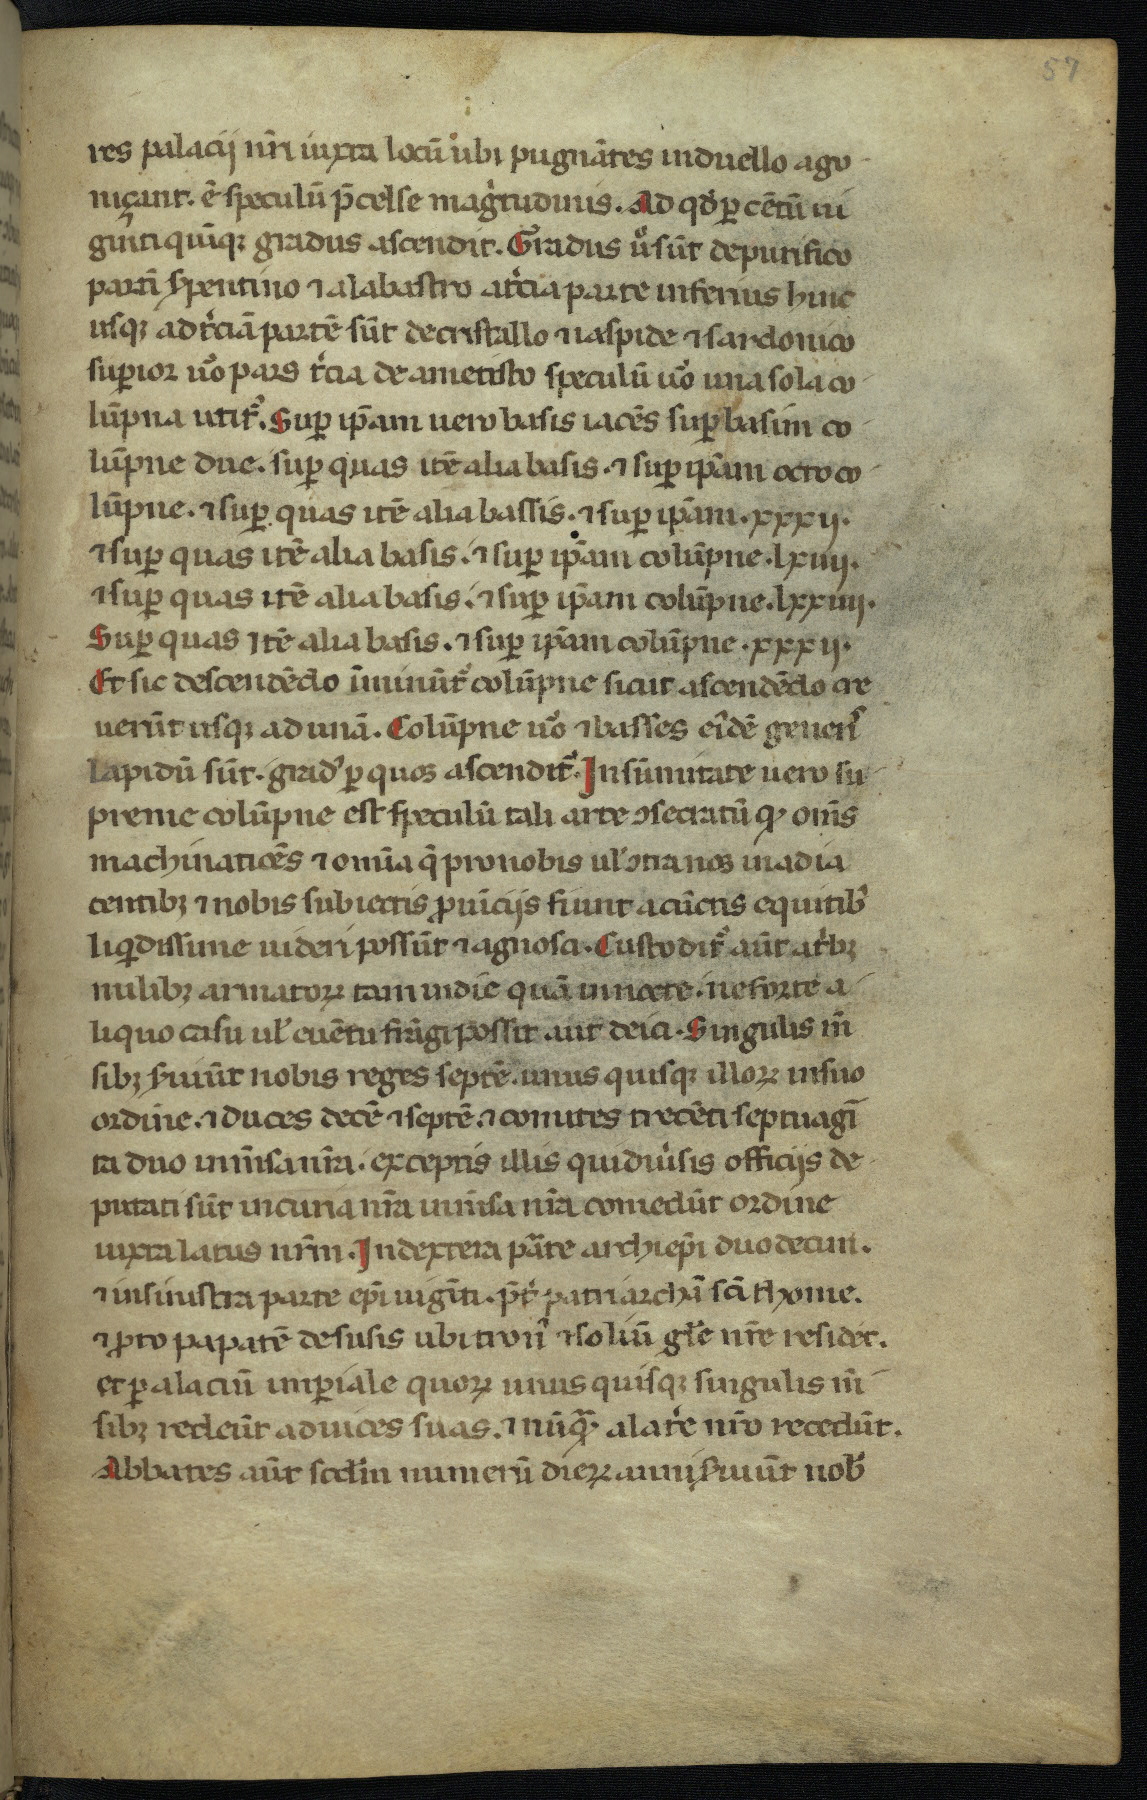 57
res palacij nr̄i iuxta locū ubi pugnātes in duello ago
niçant. ē speculū p̄celse magͥtudinis. Ad qd̓ ꝑ cētū ui
gīti quīqꝫ gradus ascendit. Gradus u̓ sūt de purifico
partī ẜpentino ⁊ alabastro a tͥcia parte inferius hinc
usqꝫ ad tͥciā partē sūt de cristallo ⁊ iaspide ⁊ sardonico
suꝑior uͦo pars tͥcia de ametisto speculū uͦo una sola co
lūpna utit᷑. Suꝑ ip̄am uero basis iacēs suꝑ basim co
lūpne due. suꝑ quas itē alia basis. ⁊ suꝑ ip̄am octo co
lūpne. ⁊ suꝑ quas itē alia bassis. ⁊ suꝑ ip̄am. xxxij.
⁊ suꝑ quas itē alia basis. ⁊ suꝑ ip̄am colūpne. lxiiij.
⁊ suꝑ quas itē alia basis. ⁊ suꝑ ip̄am colūpne. lxxiiij.
Suꝑ quas Itē alia basis. ⁊ suꝑ ip̄am colūpne. xxxij.
Et sic descendēdo īminūt᷑ colūpne sicut ascendēdo cre
uerūt usqꝫ ad unā. Colūpne uͦo ⁊ basses eiͥdē geneꝝ̄
lapidū sūt. gradꝰ ꝑ quos ascendit᷑. In sūmitate uero su
preme colūpne est speculū tali arte ɔsecratū qꝫ om̄s
machinaticēs ⁊ om̄ia q̄ pro nobis ul̓ ɔtra nos in adia
centibꝫ ⁊ nobis subiectis ꝓuīcijs fiunt a cūctis equitibꝰ
liqͥdissime uideri possūt ⁊ agnosci. Custodit᷑ aūt a tͥbꝫ
milibꝫ armatoꝝ tam in die quā in nocte. ne forte a
liquo casu ul̓ euētu frāgi possit aut deici. Singulis m̄
sibꝫ ẜuiūt nobis reges septē. unus quisqꝫ illoꝝ in suo
ordine. ⁊ duces decē ⁊ septē. ⁊ comites trecēti septuagī
ta duo in m̄sa nr̄a. exceptis illis qui diuͥsis officijs de
putati sūt in curia nr̄a in m̄sa nr̄a comedūt ordine
iuxta latus nr̄m. In dextera ꝑāte archiep̄i duodecim.
⁊ in sinistra parte ep̄i uigīti. p̄tͥ patriarchā sc̄i thome.
⁊ ꝓto papatē de susis ubi tronꝰ ⁊ soliū gl̓e nr̄e residet.
et ꝑalaciū imꝑiale quoꝝ unus quisqꝫ singulis m̄
sibꝫ redeūt ad uices suas. ⁊ nūqͣꝫ a latͥe nr̄o recedūt.
Abbates aūt scd̓m numerū dieꝝ anni ẜuiūt nobꝰ